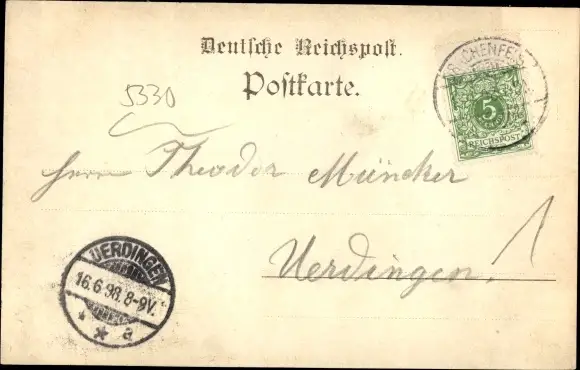 Deutsche Reichspost.
Postkarte.
5330
5
REICHSPOST
Herrn Theodor Müncker
Uerdingen.
UERDINGEN
16.6.98. 8-9V.
* * a